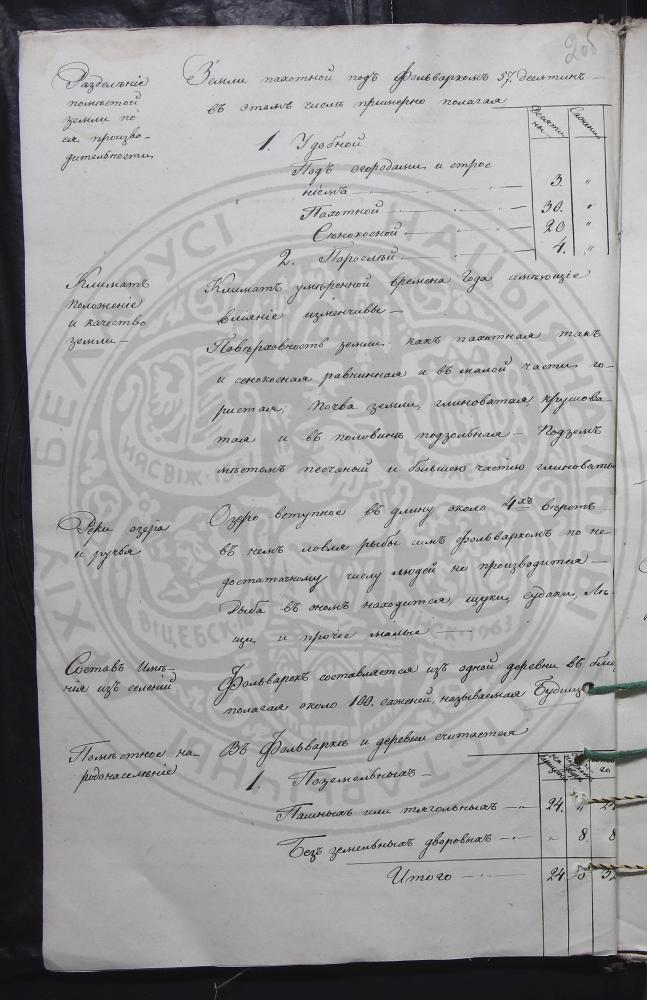 20б
Раздѣленіе
помѣстой
земли по
ея произво-
дительности
Земли пахотной подъ Фольваркомъ 57. десятинъ
въ этомъ числѣ примерно полагая
Десяти
ны.
Сажени
1. Удобной
Подъ огородами и строе
ніемъ 3. "
Пахотной 30. "
Сѣнокосной 20 "
2. Порослей 4. "
Климатъ
положеніе
и качество
земли
Климатъ умѣренной времена года имѣющіе
вліяніе изменчивы
Повѣрхность земли какъ пахотная такъ
и сенокосная равнинная и въ малой части го-
ристая, Почва земли, глиноватая, крушова-
тая и въ половинѣ подзолбная Подзем
мѣстомъ песчаный и большею частію глиновато
Реки озера
и ручья
Озеро вступное въ длину около 4хъ верстъ
въ немъ ловля рыбы симъ фольваркомъ по не-
достаточному числу людей не производится
Рыба въ ономъ находится, щуки, судаки, Ле-
щи, и прочіе малые
Составъ Имѣ-
нія изъ селеній
Фольваркъ составляется изъ одной деревни въ бли
полагая около 100. саженей, называемая Будищ
Помѣстное на-
родонаселѣніе
Въ Фольваркѣ и деревни считается
1. Поземельныхъ
Пашныхъ или тяглольныхъ 24. "
Безъ земельныхъ дворовыхъ " 8. 8
Итого 24 8
БЕЛАРУСІ
НЯСВІЖ
ВІЦЕБСК